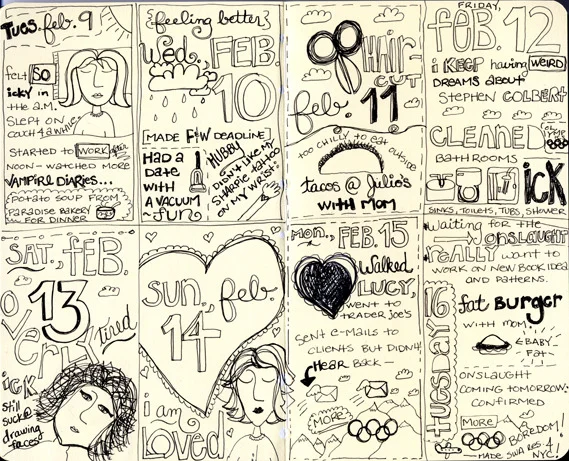 TUES. feb. 9
felt SO
icky in
the a.m.
SLEPT ON
COUCH 4 awhile
STARTED TO WORK after
NOON - WATCHED MORE
VAMPIRE DIARIES...
POTATO SOUP FROM
PARADISE BAKERY
FOR DINNER
{feeling better}
Wed., FEB.
10
[MADE F+W DEADLINE]
HAD A
DATE
WITH
A VACUUM
~fun~
HUBBY
DIDN'T LIKE MY
SHARPIE TATTOO
ON MY WRIST
HAIR
CUT
feb. 11
TOO CHILLY TO EAT OUTSIDE
tacos @ Julio's
WITH MOM
FRIDAY,
FEB. 12
i KEEP having WEIRD
DREAMS ABOUT
STEPHEN COLBERT
CLEANED
BATHROOMS
ICK
SINKS, TOILETS, TUBS, SHOWER
SAT., FEB.
13
OVERLY tired
ick
Still
suck @
drawing
faces
SUN., feb.
14
i am
LOVED
MON., FEB. 15
Walked
LUCY,
WENT TO
TRADER JOE'S
SENT E-MAILS TO
CLIENTS BUT DIDN'T
HEAR BACK —
MORE
TUESDAY 16
waiting for the
ONSLAUGHT
REALLY want to
WORK ON NEW BOOK IDEA
AND PATTERNS.
fat BURGER
WITH MOM
BABY
FAT
ONSLAUGHT
COMING TOMORROW-
CONFIRMED
MORE
BOREDOM!
MADE SWA RES. 4
NYC!